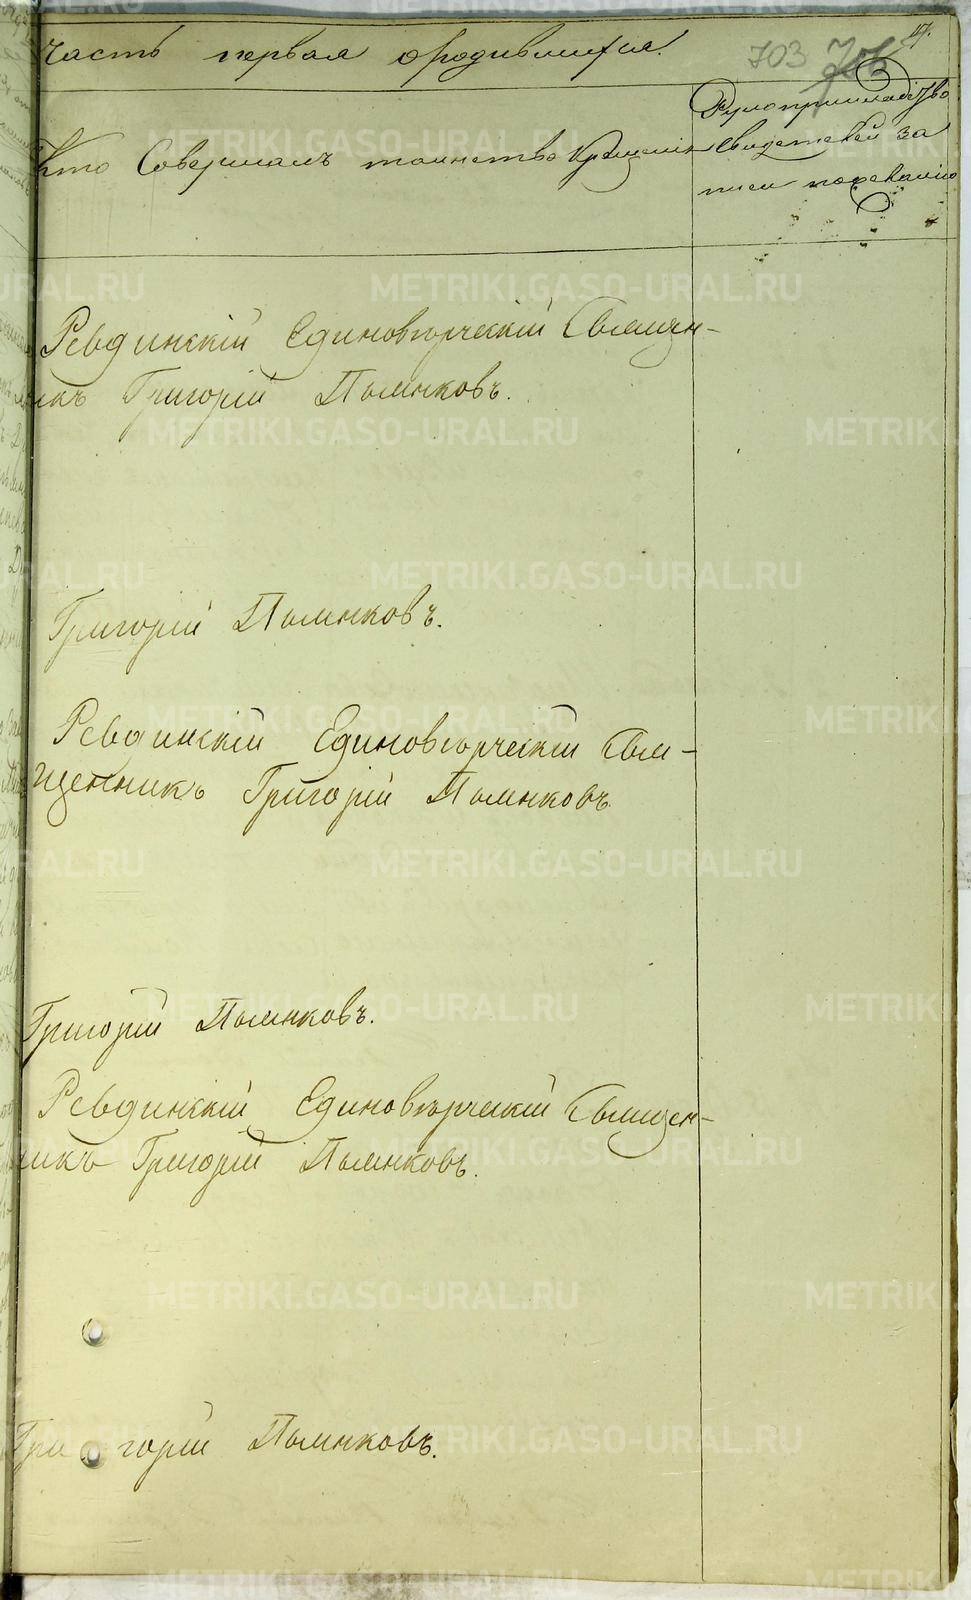 часть первая о родившихся.
703 706 17.
Кто Совершалъ таинство Крещенія
Рукоприкладство
Свидетелей за
писи по желанію
Ревдинскій Единоверческій Священ-
никъ Григорій Пьянковъ.
Григорій Пьянковъ.
Ревдинскій Единоверческій Свя-
щенникъ Григорій Пьянковъ
Григорій Пьянковъ.
Ревдинскій Единоверческій Священ-
никъ Григорій Пьянковъ.
Григорій Пьянковъ.
METRIKI.GASO-URAL.RU